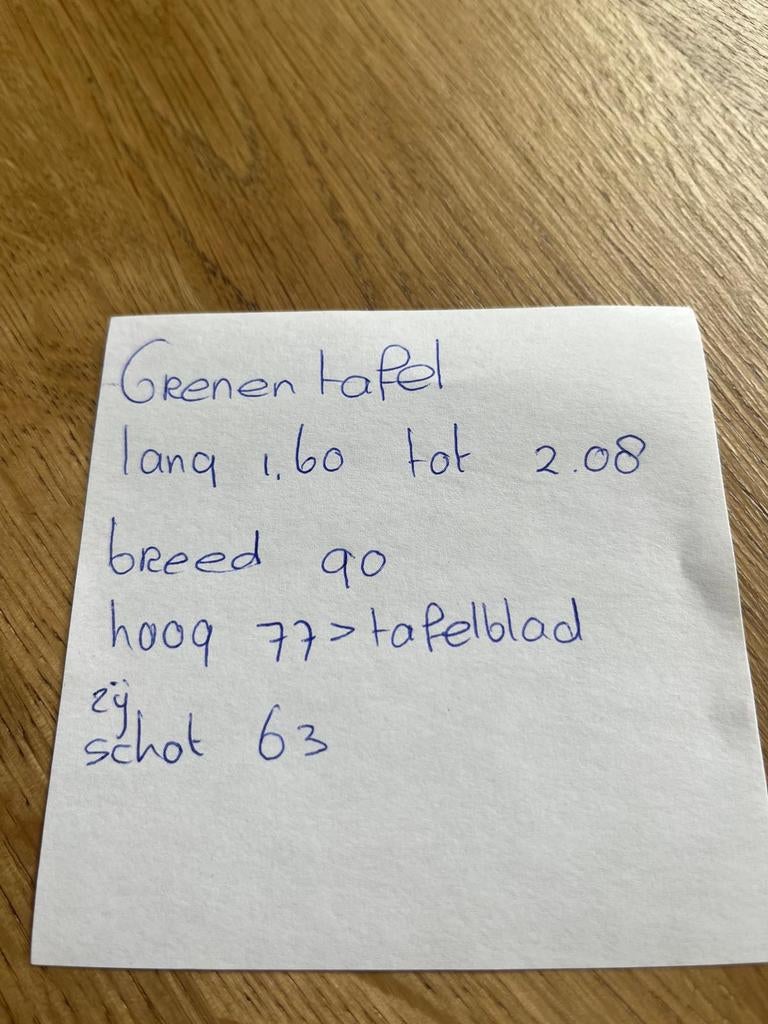 Grenen tafel
lang 1.60 tot 2.08
breed 90
hoog 77 > tafelblad
zij
schot 63